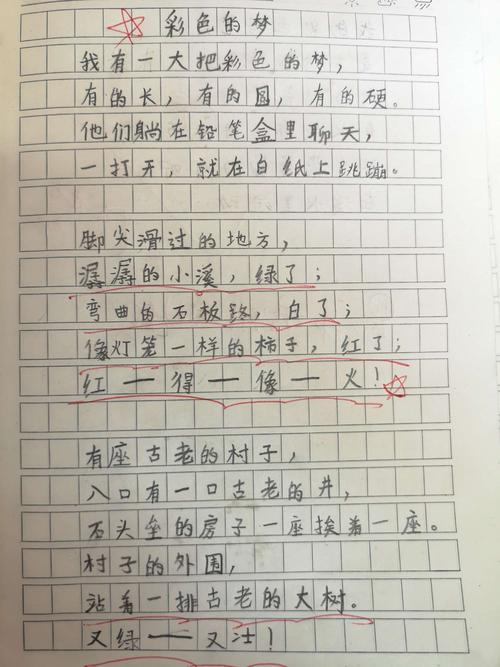 彩色的梦
我有一大把彩色的梦，
有的长，有的圆，有的硬。
他们躺在铅笔盒里聊天，
一打开，就在白纸上跳蹦。
脚尖滑过的地方，
潺潺的小溪，绿了；
弯曲的石板路，白了；
像灯笼一样的柿子，红了；
红——得——像——火！
有座古老的村子，
入口有一口古老的井，
石头垒的房子一座挨着一座。
村子的外围，
站着一排古老的大树。
又绿——又壮！